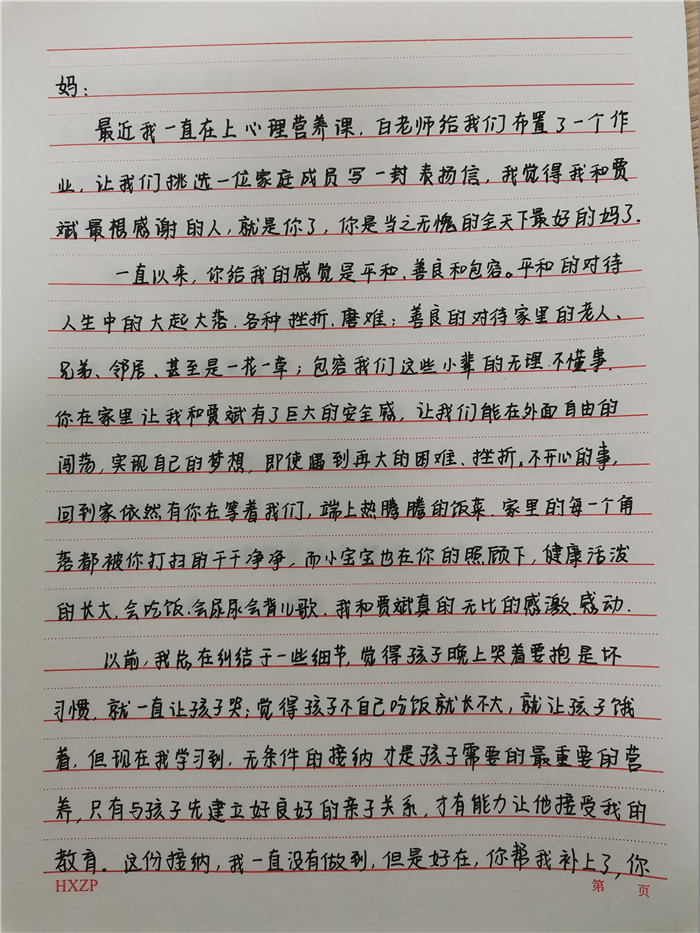 妈：
最近我一直在上心理营养课，白老师给我们布置了一个作
业，让我们挑选一位家庭成员写一封表扬信，我觉得我和贾
斌最想感谢的人，就是你了，你是当之无愧的全天下最好的妈了.
一直以来，你给我的感觉是平和、善良和包容。平和的对待
人生中的大起大落、各种挫折、磨难；善良的对待家里的老人、
兄弟、邻居、甚至是一花一草；包容我们这些小辈的无理、不懂事.
你在家里让我和贾斌有了巨大的安全感，让我们能在外面自由的
闯荡，实现自己的梦想，即使遇到再大的困难、挫折、不开心的事，
回到家依然有你在等着我们，端上热腾腾的饭菜.家里的每一个角
落都被你打扫的干干净净，而小宝宝也在你的照顾下，健康活泼
的长大.会吃饭.会尿尿会背儿歌.我和贾斌真的无比的感激.感动.
以前，我总在纠结于一些细节，觉得孩子晚上哭着要抱是坏
习惯，就一直让孩子哭；觉得孩子不自己吃饭就长不大，就让孩子饿
着，但现在我学习到，无条件的接纳才是孩子需要的最重要的营
养，只有与孩子先建立好良好的亲子关系，才有能力让他接受我的
教育。这份接纳，我一直没有做到，但是好在，你帮我补上了，你
HXZP 第 页